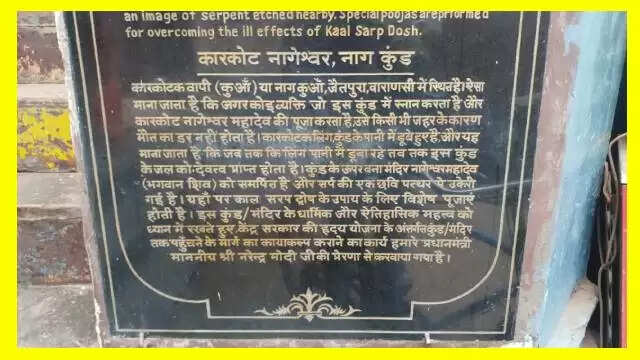 an image of serpent etched nearby. Special poojas are prformed
for overcoming the ill effects of Kaal Sarp Dosh.
कारकोट नागेश्वर, नाग कुंड
कारकोटक वापी (कुआँ) या नाग कुआँ, जैतपुरा, वाराणसी में स्थित है। ऐसा
माना जाता है कि अगर कोइ व्यक्ति जो इस कुंड में स्नान करता है और
कारकोट नागेश्वर महादेव की पूजा करता है, उसे किसी भी जहर के कारण
मौत का डर नहीं होता है। कारकोटक लिंग, कुंड के पानी में डूबे हुए है, और यह
माना जाता है कि जब तक कि लिंग पानी में डूबा रहे तब तक इस कुंड
के जल को देवत्व प्राप्त होता है। कुंड के उपर बना मंदिर नागेश्वर महादेव
(भगवान शिव) को समर्पित है और सर्प की एक छवि पत्थर पे उकेरी
गई है। यहाँ पर काल सरप द्रोष के उपाय के लिए विशेष पूजाएं
होती है। इस कुंड/मंदिर के धार्मिक और ऐतिहासिक महत्त्व को
ध्यान में रखते हुए केंद्र सरकार की हृदय योजना के अंतर्गत कुंड/मंदिर
तक पहुँचने के मार्ग का कायाकल्प कराने का कार्य हमारे प्रधानमंत्री
माननीय श्री नरेन्द्र मोदी जी की प्रेरणा से करवाया गया है।